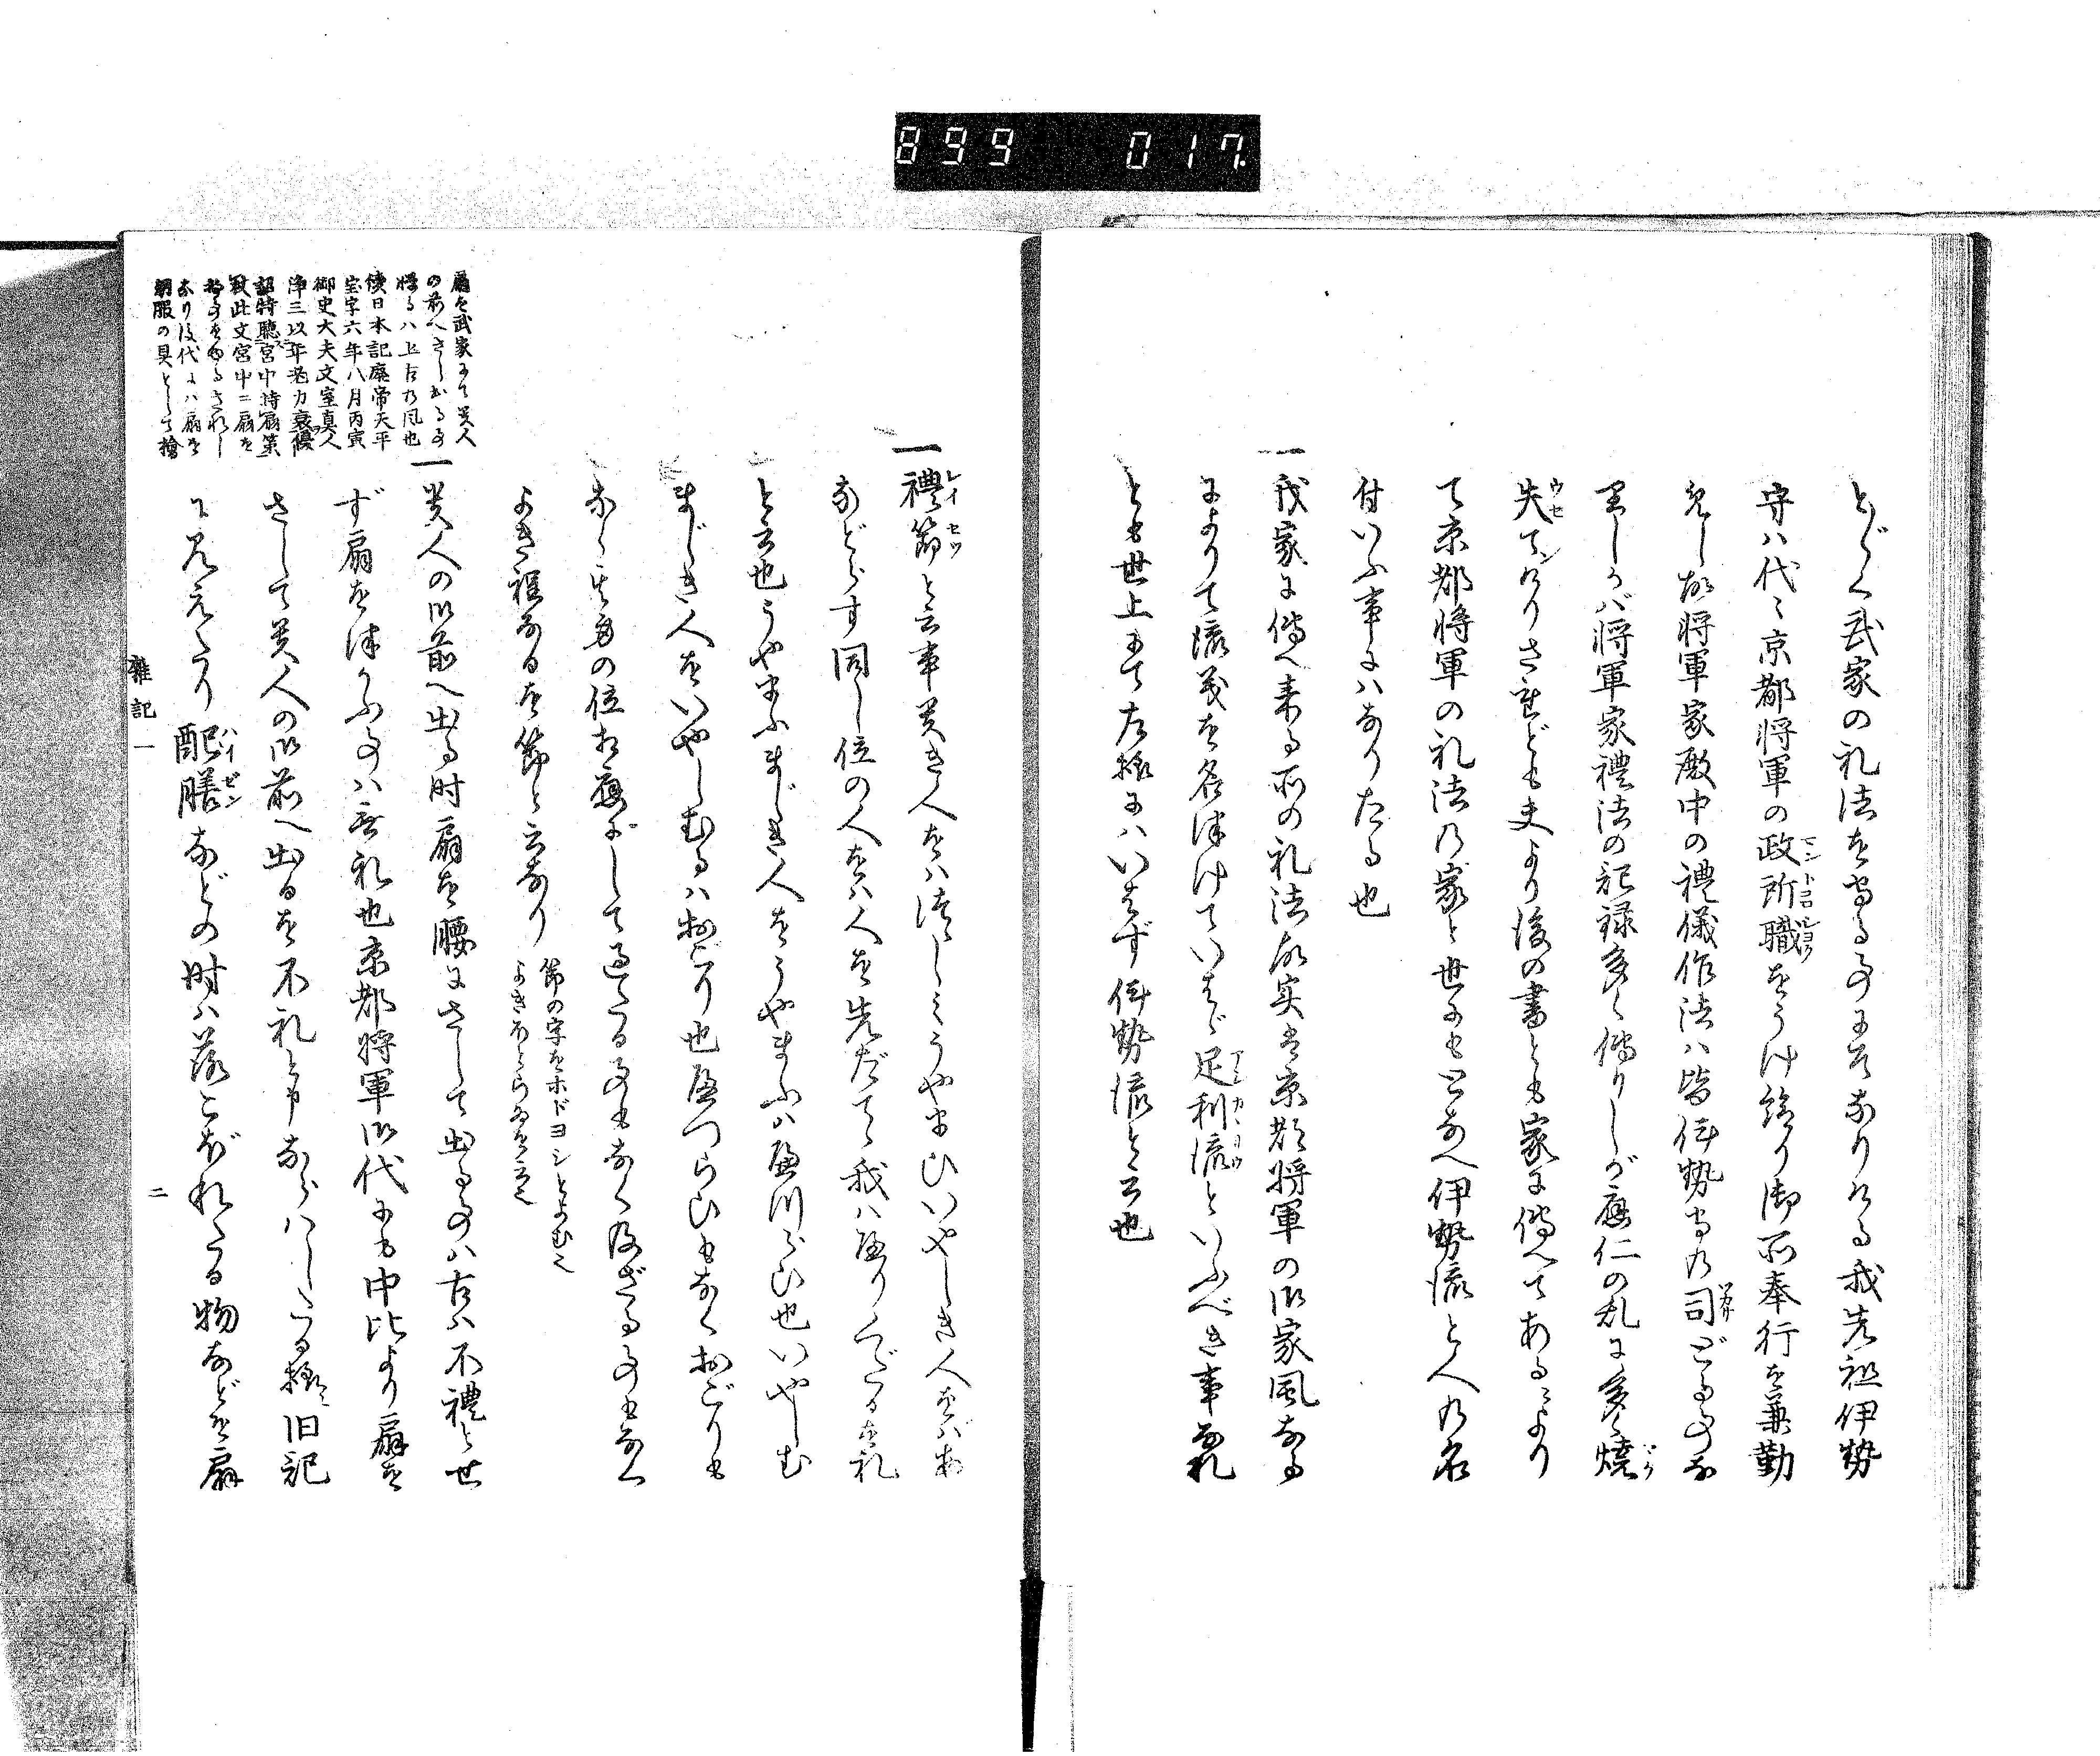 899 017
とらく武家の礼法を守る事に成なりける我先祖伊勢
守ハ代々京都将軍の政所職をうけ給り御所奉行を兼勤
めし故将軍家殿中の禮儀作法ハ皆伊勢守の司どる事な
りしかバ将軍家禮法の記録多く傳りしが應仁の乱に多く焼
失てけりされども夫より後の書とも家に傳へてあるにより
て京都将軍の礼法の家と世にもとなへ伊勢流と人の名
付いふ事にハなりたる也
一我家に傳へ来る所の礼法故実は京都将軍の御家風なる
によりて流義を名付けていはゞ足利流といふべき事なれ
とも世上にて左様にハいはず伊勢流と云也
一禮節と云事貴き人をハ貴しとうやまひいやしき人をばあ
などらす同し位の人をハ人を先だて我ハへりくだるを礼
と云也うやまふまじき人をうやまふハへつらひ也いやしむ
まじき人をいやしむるハおごり也へつらひもなくおごりも
なく其身の位相應にして過たる事もなく及ざる事もなく
よき程なるを節と云なり
節の字をホドヨシとよむ也
よきほとらゐを云也
一貴人の御前へ出る时扇を腰にさして出る事ハ古ハ不禮とせ
ず扇をつかふ事ハ無礼也京都将軍御代にも中比より扇を
さして貴人の御前へ出るを不礼と申ならハしたる様に旧記
に見えたり配膳などの时ハ落こぼれたる物などを扇
扇を武家にて貴人
の前へさし出る事
憚るハ上古の風也
續日本記廃帝天平
宝字六年八月丙寅
御史大夫文室真人
浄三以年老力衰優
詔特聴宮中持扇策
杖此文宮中ニ扇を
持事をゆるされし
なり後代にハ扇を
朝服の具として檜
雜記一
二